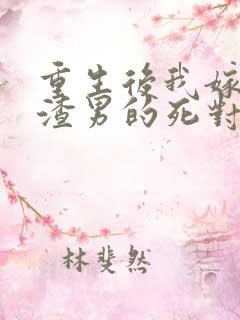 重生後我嫁
渣男的死對
林斐然